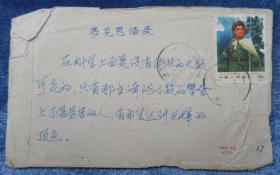 马克思语录
在科学上面是没有平坦的大路
可走的，只有那在崎岖小路的攀登
上不畏劳苦的人，有希望达到光辉的
顶点。
17